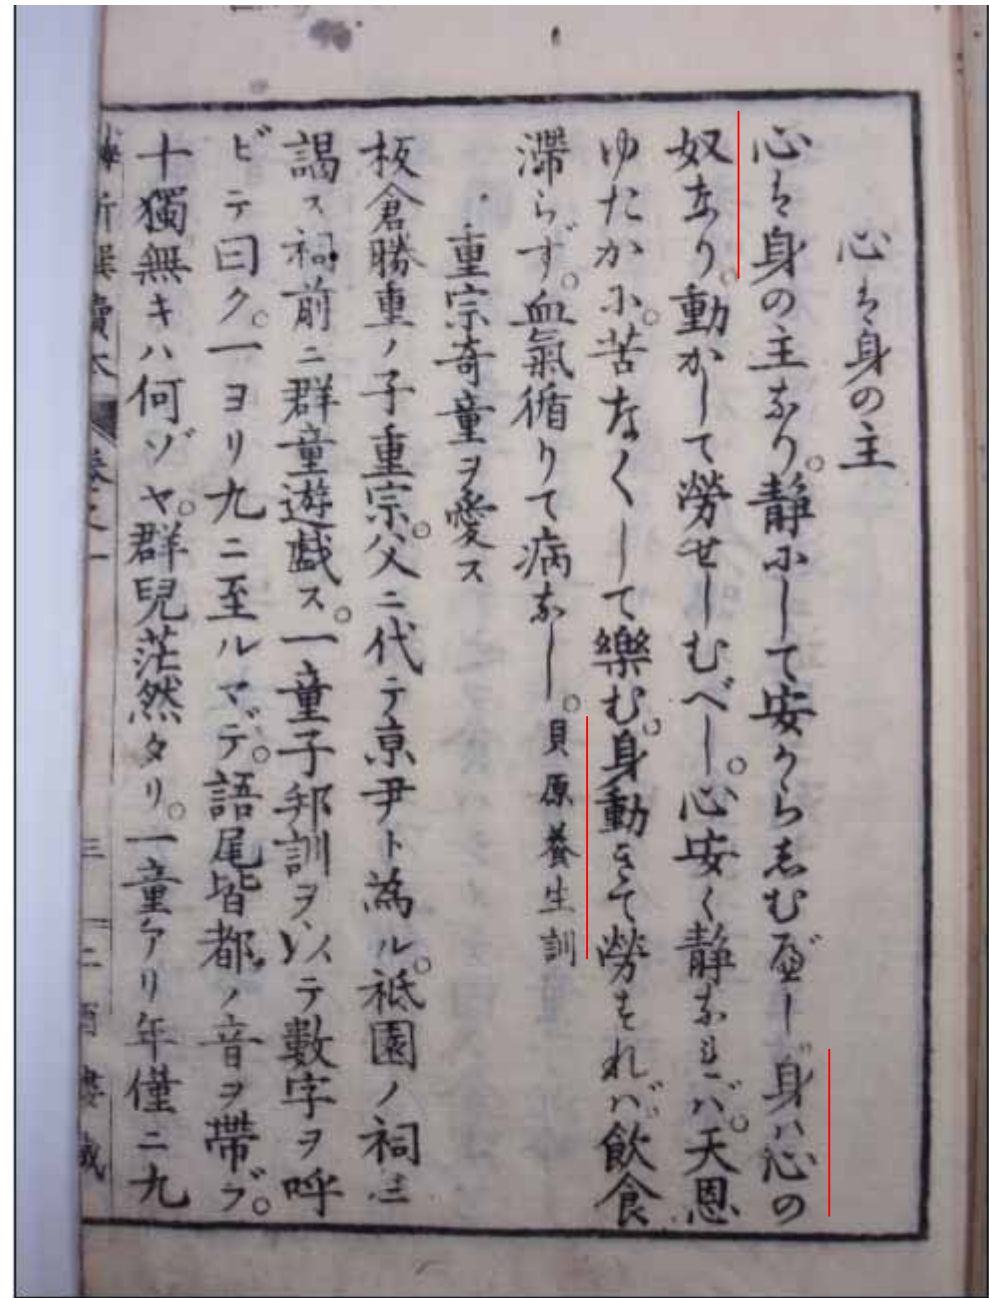 心は身の主
心は身の主なり。静にして安からしむべし身ハ心の
奴なり。動かして勞せしむべし。心安く静なれバ。天恩
ゆたかに。苦なくして樂む。身動きて勞すれバ。飲食
滞らず。血氣循りて病なし。貝原養生訓
重宗奇童ヲ愛ス
板倉勝重ノ子重宗。父ニ代テ京尹ト為ル。祗園ノ祠ニ
謁ス祠前ニ群童遊戯ス。一童子邦訓ヲ以テ數字ヲ呼
ビテ曰ク。一ヨリ九ニ至ルマデ。語尾皆都ノ音ヲ帶ブ。
十獨無キハ何ゾヤ。群兒茫然タリ。一童アリ年僅ニ九
讀本 卷之一 三 二酉樓藏